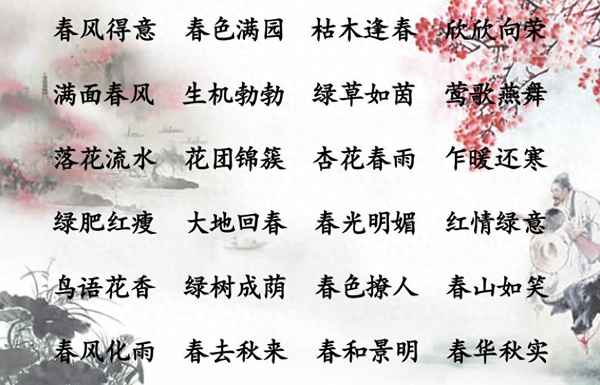 春风得意 春色满园 枯木逢春 欣欣向荣
满面春风 生机勃勃 绿草如茵 莺歌燕舞
落花流水 花团锦簇 杏花春雨 乍暖还寒
绿肥红瘦 大地回春 春光明媚 红情绿意
鸟语花香 绿树成荫 春色撩人 春山如笑
春风化雨 春去秋来 春和景明 春华秋实